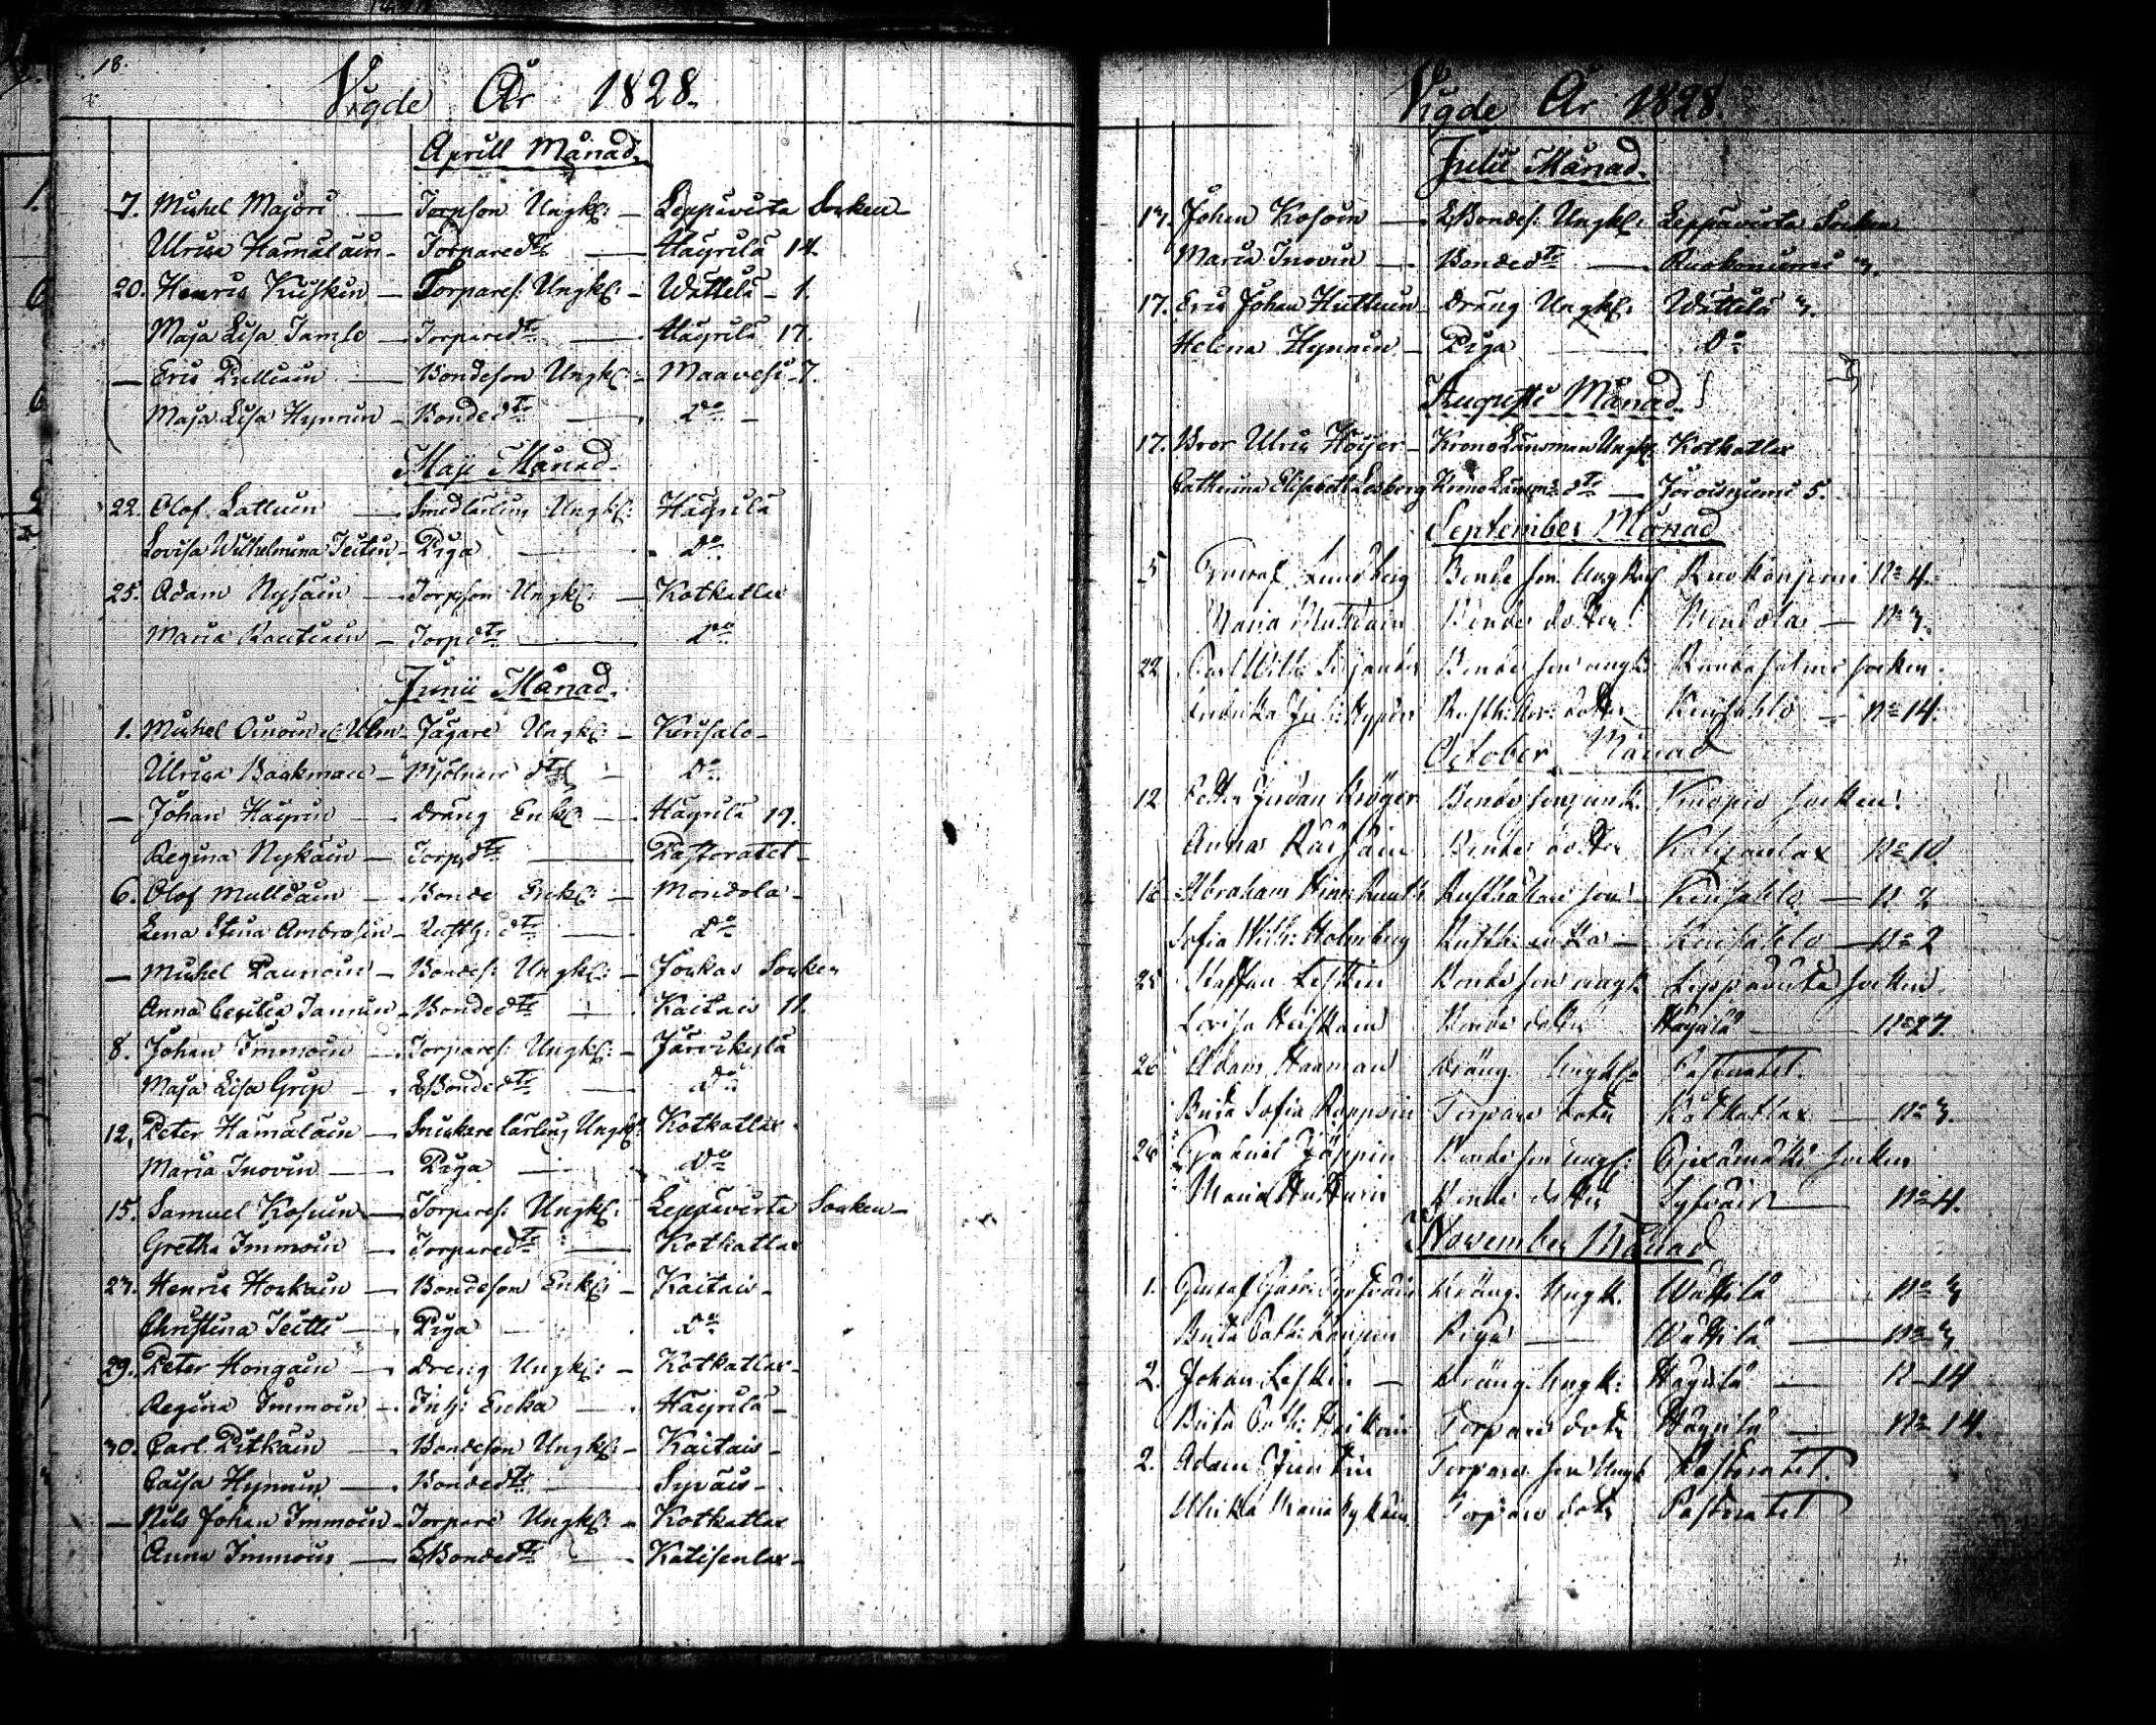 18.
Vigde År 1828.
Aprill Månad.
7. Michel Majori — Torpson Ungk: — Leppävirta Socken
Ulrica Hämäläin — Torparedtr — Häyrilä 14.
20. Henric Kuiskin — Torpares: Ungk: — Wättilä — 1.
Maja Lisa — Torparedtr — Häyrilä 17.
— Eric Pulliain — Bondeson Ungk: — Maavesi — 7.
Maja Lisa Hynnin — Bondedtr — Do —
Maji Månad.
22. Olof Latluin — Smedlärling Ungk: Häyrilä
Lovisa Wilhelmina Teitin — Piga — Do
25. Adam Nysäin — Torpson Ungk: — Kotkatlax
Maria Rautiain — Torpdtr — Do
Junii Månad.
1. Michel Oinoin el. Ulm — Jägare Ungk: — Kerisalo —
Ulrica Backman — Mjölnare dtr — Do
— Johan Häyrin — dräng Enkl: — Häyrilä 19.
Regina Nykäin — Torpdtr — Pastoratet —
6. Olof Mulldain — Bonde Enkl: — Mondola —
Lena Stina Ambrosin — Rusth: dtr — Do
— Michel Paunoin — Bondes: Ungk: — Jockas Socken
Anna Cecilia — Bondedtr — Kaitais 11.
8. Johan Immoin — Torpares: Ungk: — Järvikylä
Maja Lisa Grip — Bondedtr — Do
12. Peter Hämäläin — Snickare lärling Ungk: Kotkatlax
Maria Inovin — Piga — Do
15. Samuel Kosuin — Torpares: Ungk: Leppävirta Socken —
Gretha Immoin — Torparedtr — Kotkatlax
23. Henric Horkain — Bondeson Enkl: — Kaitais —
Christina Teitti — Piga — Do
29. Peter Hongain — dreng Ungk: — Kotkatlax —
Regina Immoin — Inh: Encka — Häyrilä —
30. Carl Pitkäin — Bondeson Ungk: — Kaitais —
Caisa Hynnin — Bondedtr — Syväis —
— Nils Johan Immoin — Torpare Ungk: — Kotkatlax
Anna Immoin — Bondedtr — Katisenlax —
Vigde År 1828.
Julii Månad.
13. Johan Kosoin — Bondes: Ungk: Leppävirta Socken
Maria Inovin — Bondedtr — Ruokoniemi 3.
17. Eric Johan Huttuin — dräng Ungk: Wättilä 3.
Helena Hynnin — Piga — Do
Augusti Månad.
17. Bror Ulric Höijer — Krono Länsman Ungk: Kotkatlax
Catharina Elisabeth Losberg Krono Länsm: dtr — Joroisniemi 5.
September Månad
5 Gustaf Lundberg Bonde son Ungkarl Ruokoniemi No 4.
Maria Bonde dotter Mondola — No 3.
22 Carl Wilh: Bonde son ungk: Randasalmi socken.
Fredrika Rusth: dotter Kerisahlo — No 14.
October Månad
12 Petter Judan Kröger Bonde son ungk: Kuopio socken.
Anna Räisäin Bonde dotter Katisenlax No 10.
16 Abraham Rusthållare son Kerisahlo — N 2
Sofia Wilh: Holmberg Rusth: Kerisahlo — No 2
25 Staffan Leskin Bonde son ungk: Leppävirta socken
Lovisa Heiskain Bonde dotter Häyrilä — No 27.
26 Adam Haaman dräng Ungk: Pastoratet.
Brita Sofia Roppoin Torpare dotr Kotkatlax — No 3.
26 Gabriel Jäppin Bonde son ungk: Pjexämäki socken
Maria Huttuin Bonde dotter Syväis — No 4.
November Månad
1. Gustaf dräng Ungk: Wättilä — No 3
Brita Cath: Piga — Wättilä — No 3
2. Johan Leskin — dräng Ungk: Häyrilä — N 14
Brita Cath: Torpare dotr Häyrilä — No 14.
2. Adam Juntin Torpare son Ungk: Pastoratet.
Ulrika Maria Nykäin Torpare dotr Pastoratet